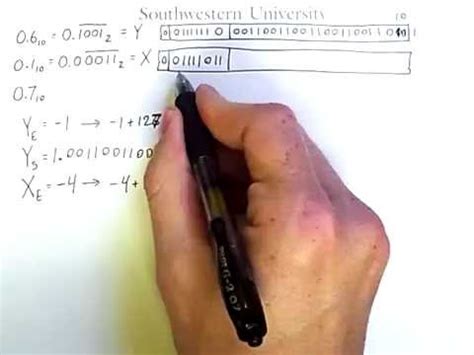 Southwestern University
0.6₁₀ = 0.1̅0̅0̅1̅₂ = Y 0 0111111 0 00110011001100110011001 10
0.1₁₀ = 0.00̅0̅1̅1̅₂ = X 0 01111011
0.7₁₀
Y_E = -1 → -1+127
Y_S = 1.0011001100
X_E = -4 → -4+